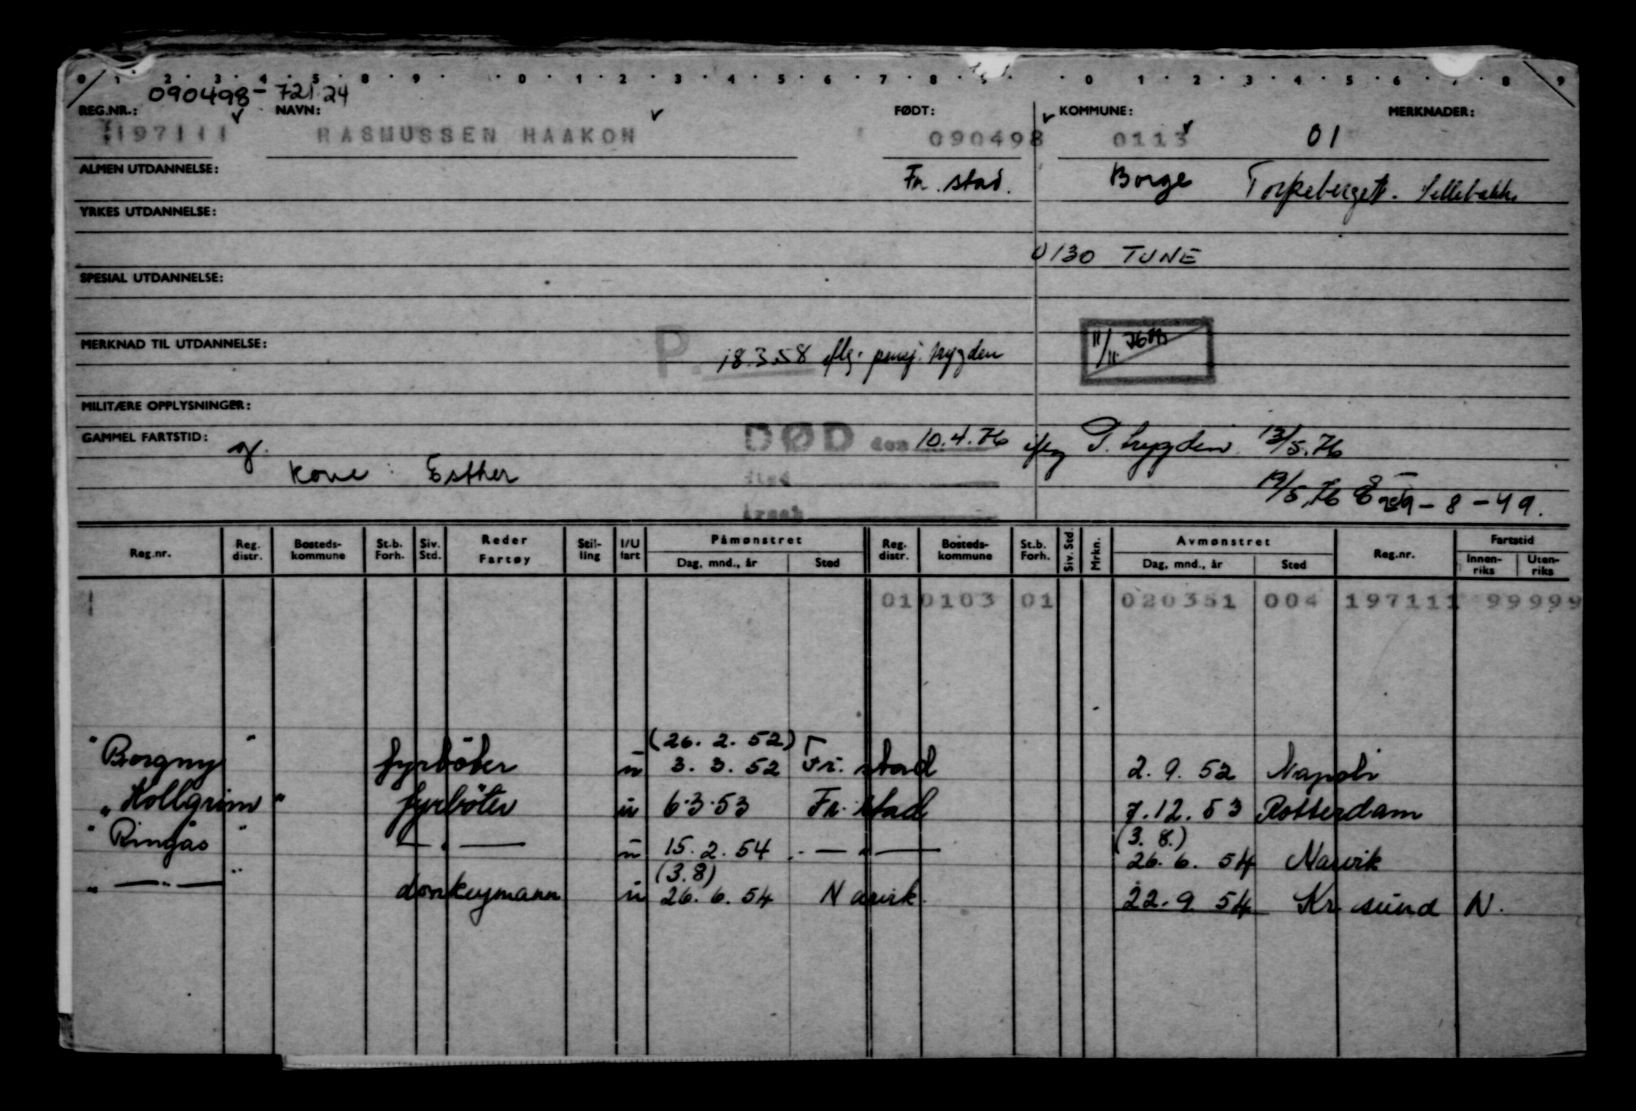 0 1 2 3 4 5 8 9 0 1 2 3 4 5 6 7 8 9 0 1 2 3 4 5 6 7 8 9
090498-721 24
REG.NR.: NAVN: FØDT: KOMMUNE: MERKNADER:
197111 RASMUSSEN HAAKON 090498 0113 01
ALMEN UTDANNELSE: Fr. stad. Borge Torpeberget. Sellebakk
YRKES UTDANNELSE:
0130 TUNE
SPESIAL UTDANNELSE:
MERKNAD TIL UTDANNELSE: P. 18.3.58 iflg. pensj. trygden 11/11
MILITÆRE OPPLYSNINGER:
GAMMEL FARTSTID: DØD den 10.4.76 iflg P. trygden 13/5.76
Kone: Esther sted
19/5.76 29-8-49.
årsak
Reg.nr. Reg. distr. Bosteds-kommune St.b. Forh. Siv. Std. Reder Fartøy Stil-ling I/U fart Påmønstret Dag, mnd., år Sted Reg. distr. Bosteds-kommune St.b. Forh. Siv. Std Mrkn. Avmønstret Dag, mnd., år Sted Reg.nr. Fartstid Innen-riks Uten-riks
01 0103 01 020351 004 197111 99999
(26. 2. 52)
"Borgny" fyrbøter u 3. 3. 52 Fr. stad 2. 9. 52 Napoli
"Hallgrim" fyrbøter u 6.3.53 Fr. stad 7.12.53 Rotterdam
(3. 8.)
"Ringås" — " — u 15. 2. 54 — " — 26. 6. 54 Narvik
(3.8)
" — " — " donkeymann u 26. 6. 54 Narvik 22. 9. 54 Kr. sund N.